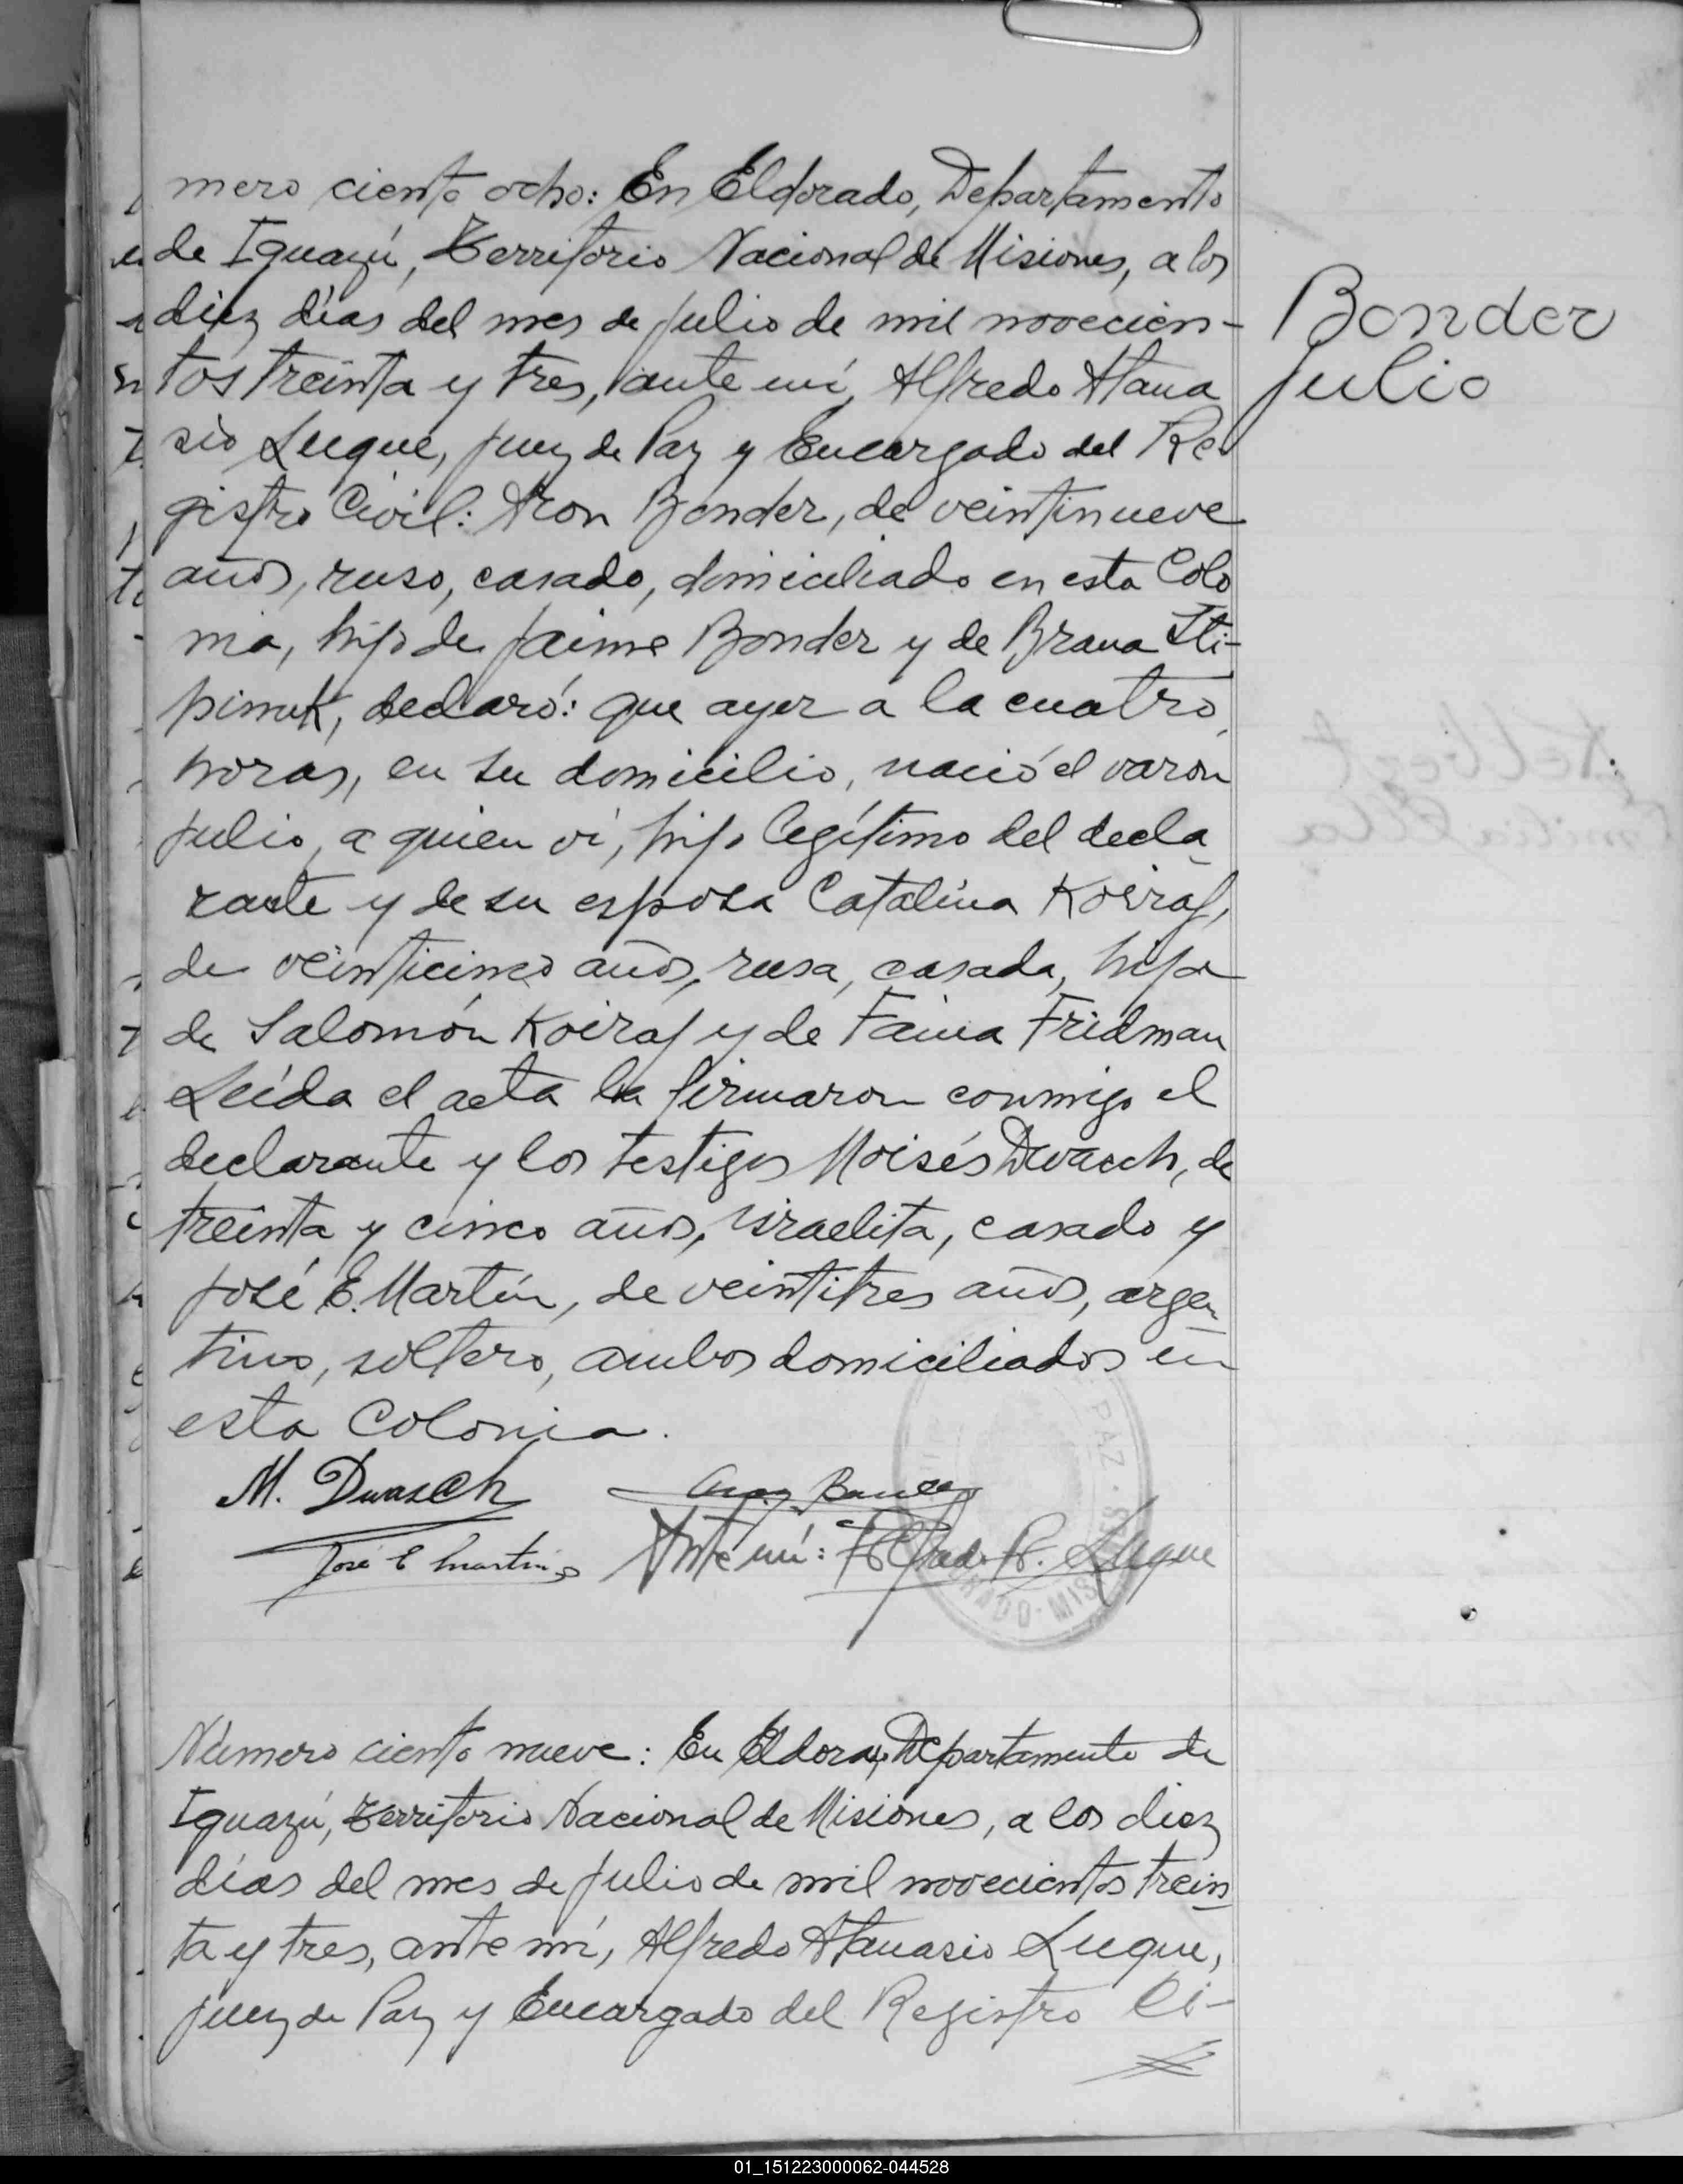 mero ciento ocho: En Eldorado, Departamento
de Iguazú, Territorio Nacional de Misiones, a los
diez días del mes de julio de mil novecien-
tos treinta y tres, ante mí, Alfredo Atana
sio Luque, Juez de Paz y Encargado del Re-
gistro Civil: Aron Bonder, de veintinueve
años, ruso, casado, domiciliado en esta Colo
nia, hijo de Jaime Bonder y de Brana
declaró: que ayer a la cuatro
horas, en su domicilio, nació el varon
Julio, a quien ví, hijo legítimo del decla
rante y de su esposa Catalina Koiraf,
de veinticinco años, rusa, casada, hija
de Salomón Koiraf y de Faina Fridman
Leída el acta la firmaron conmigo el
declarante y los testigos Moisés Dwasch, de
treinta y cinco años, israelita, casado y
José E. Martín, de veintitres años, argen
tino, soltero, ambos domiciliados en
esta Colonia.
M. Dwasch
José E Martin
Ante mí: Alfredo A. Luque
PAZ
ORADO-MIS
Número ciento nueve: En Eldora, Departamento de
Iguazú, Territorio Nacional de Misiones, a los diez
días del mes de julio de mil novecientos trein
ta y tres, ante mí, Alfredo Atanasio Luque,
Juez de Paz y Encargado del Registro Ci-
Bonder
Julio
01_151223000062-044528